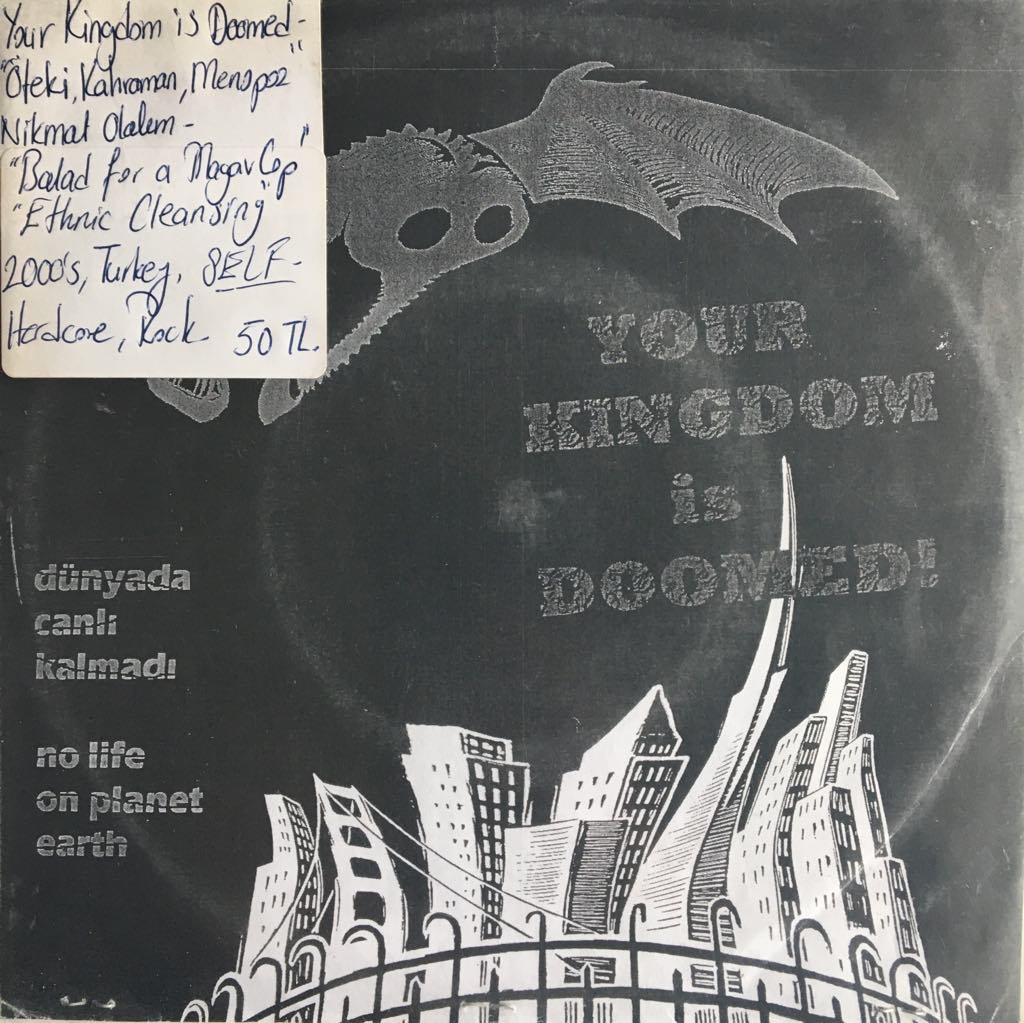 Your Kingdom is Doomed -
"Öteki, Kahraman, Menopoz"
Nikmat Olalem -
"Balad for a Magav Cop"
"Ethnic Cleansing"
2000's, Turkey, SELF -
Hardcore, Rock 50 TL.
YOUR
KINGDOM
is
DOOMED!
dünyada
canlı
kalmadı
no life
on planet
earth